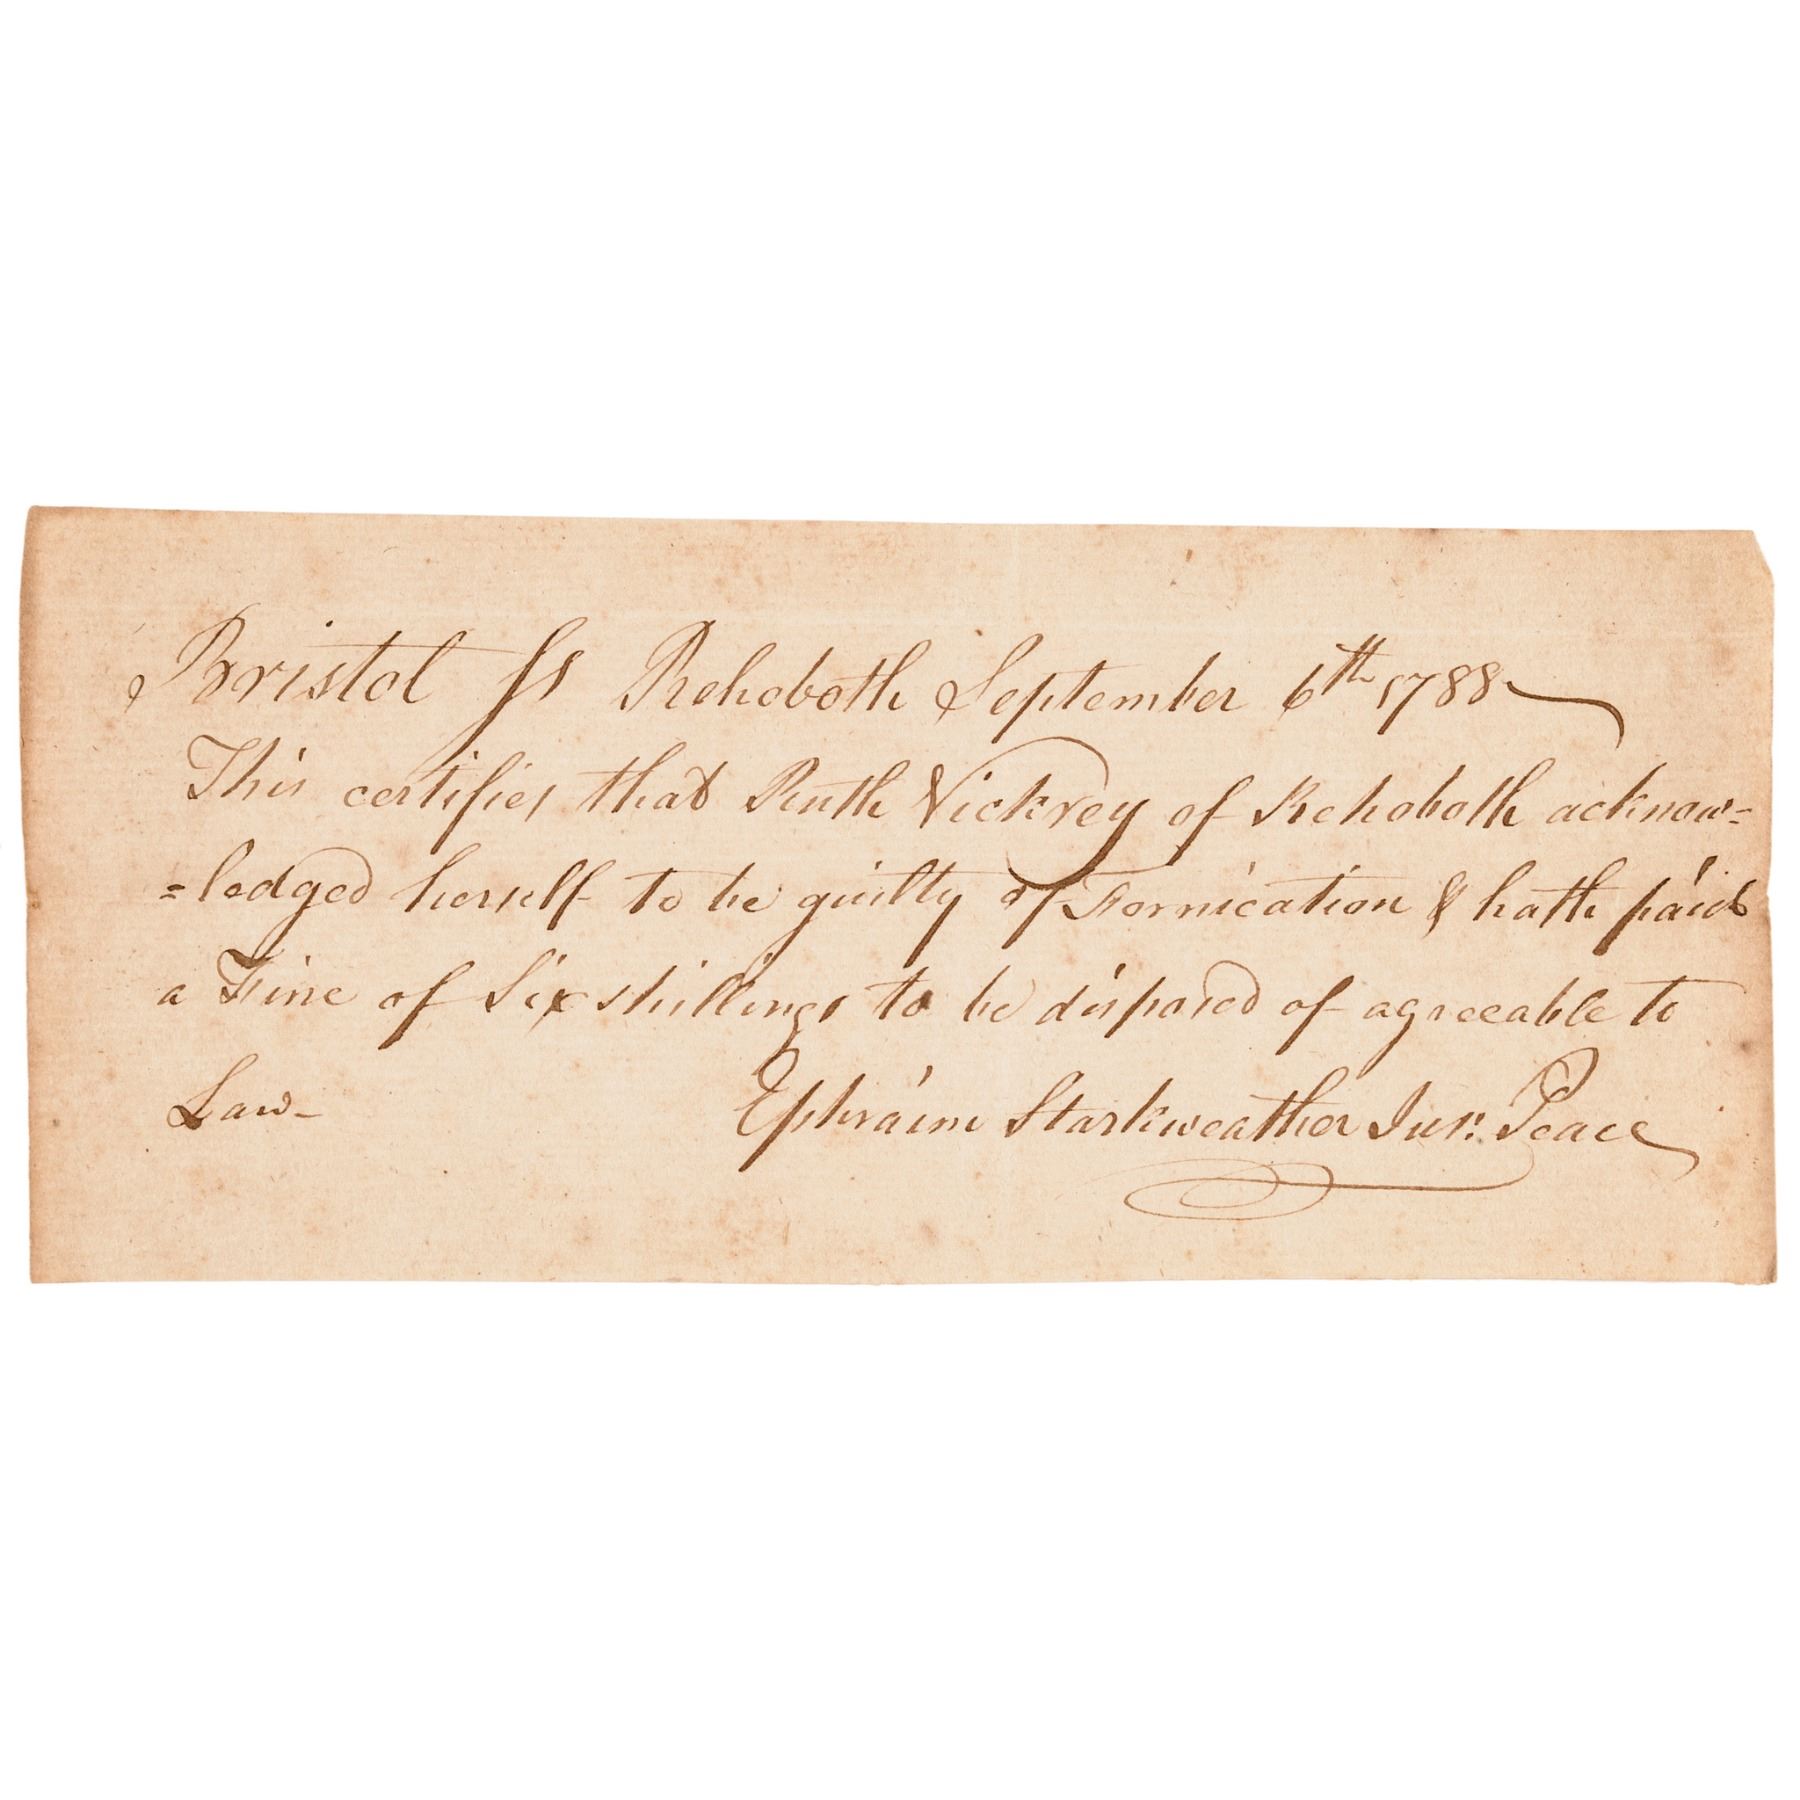 Bristol ss Rehoboth September 6th 1788
This certifies that Ruth Vickrey of Rehoboth acknow=
=ledged herself to be guilty of Fornication & hath paid
a Fine of Six shillings to be disposed of agreeable to
Law— Ephraim Starkweather Jus: Peace